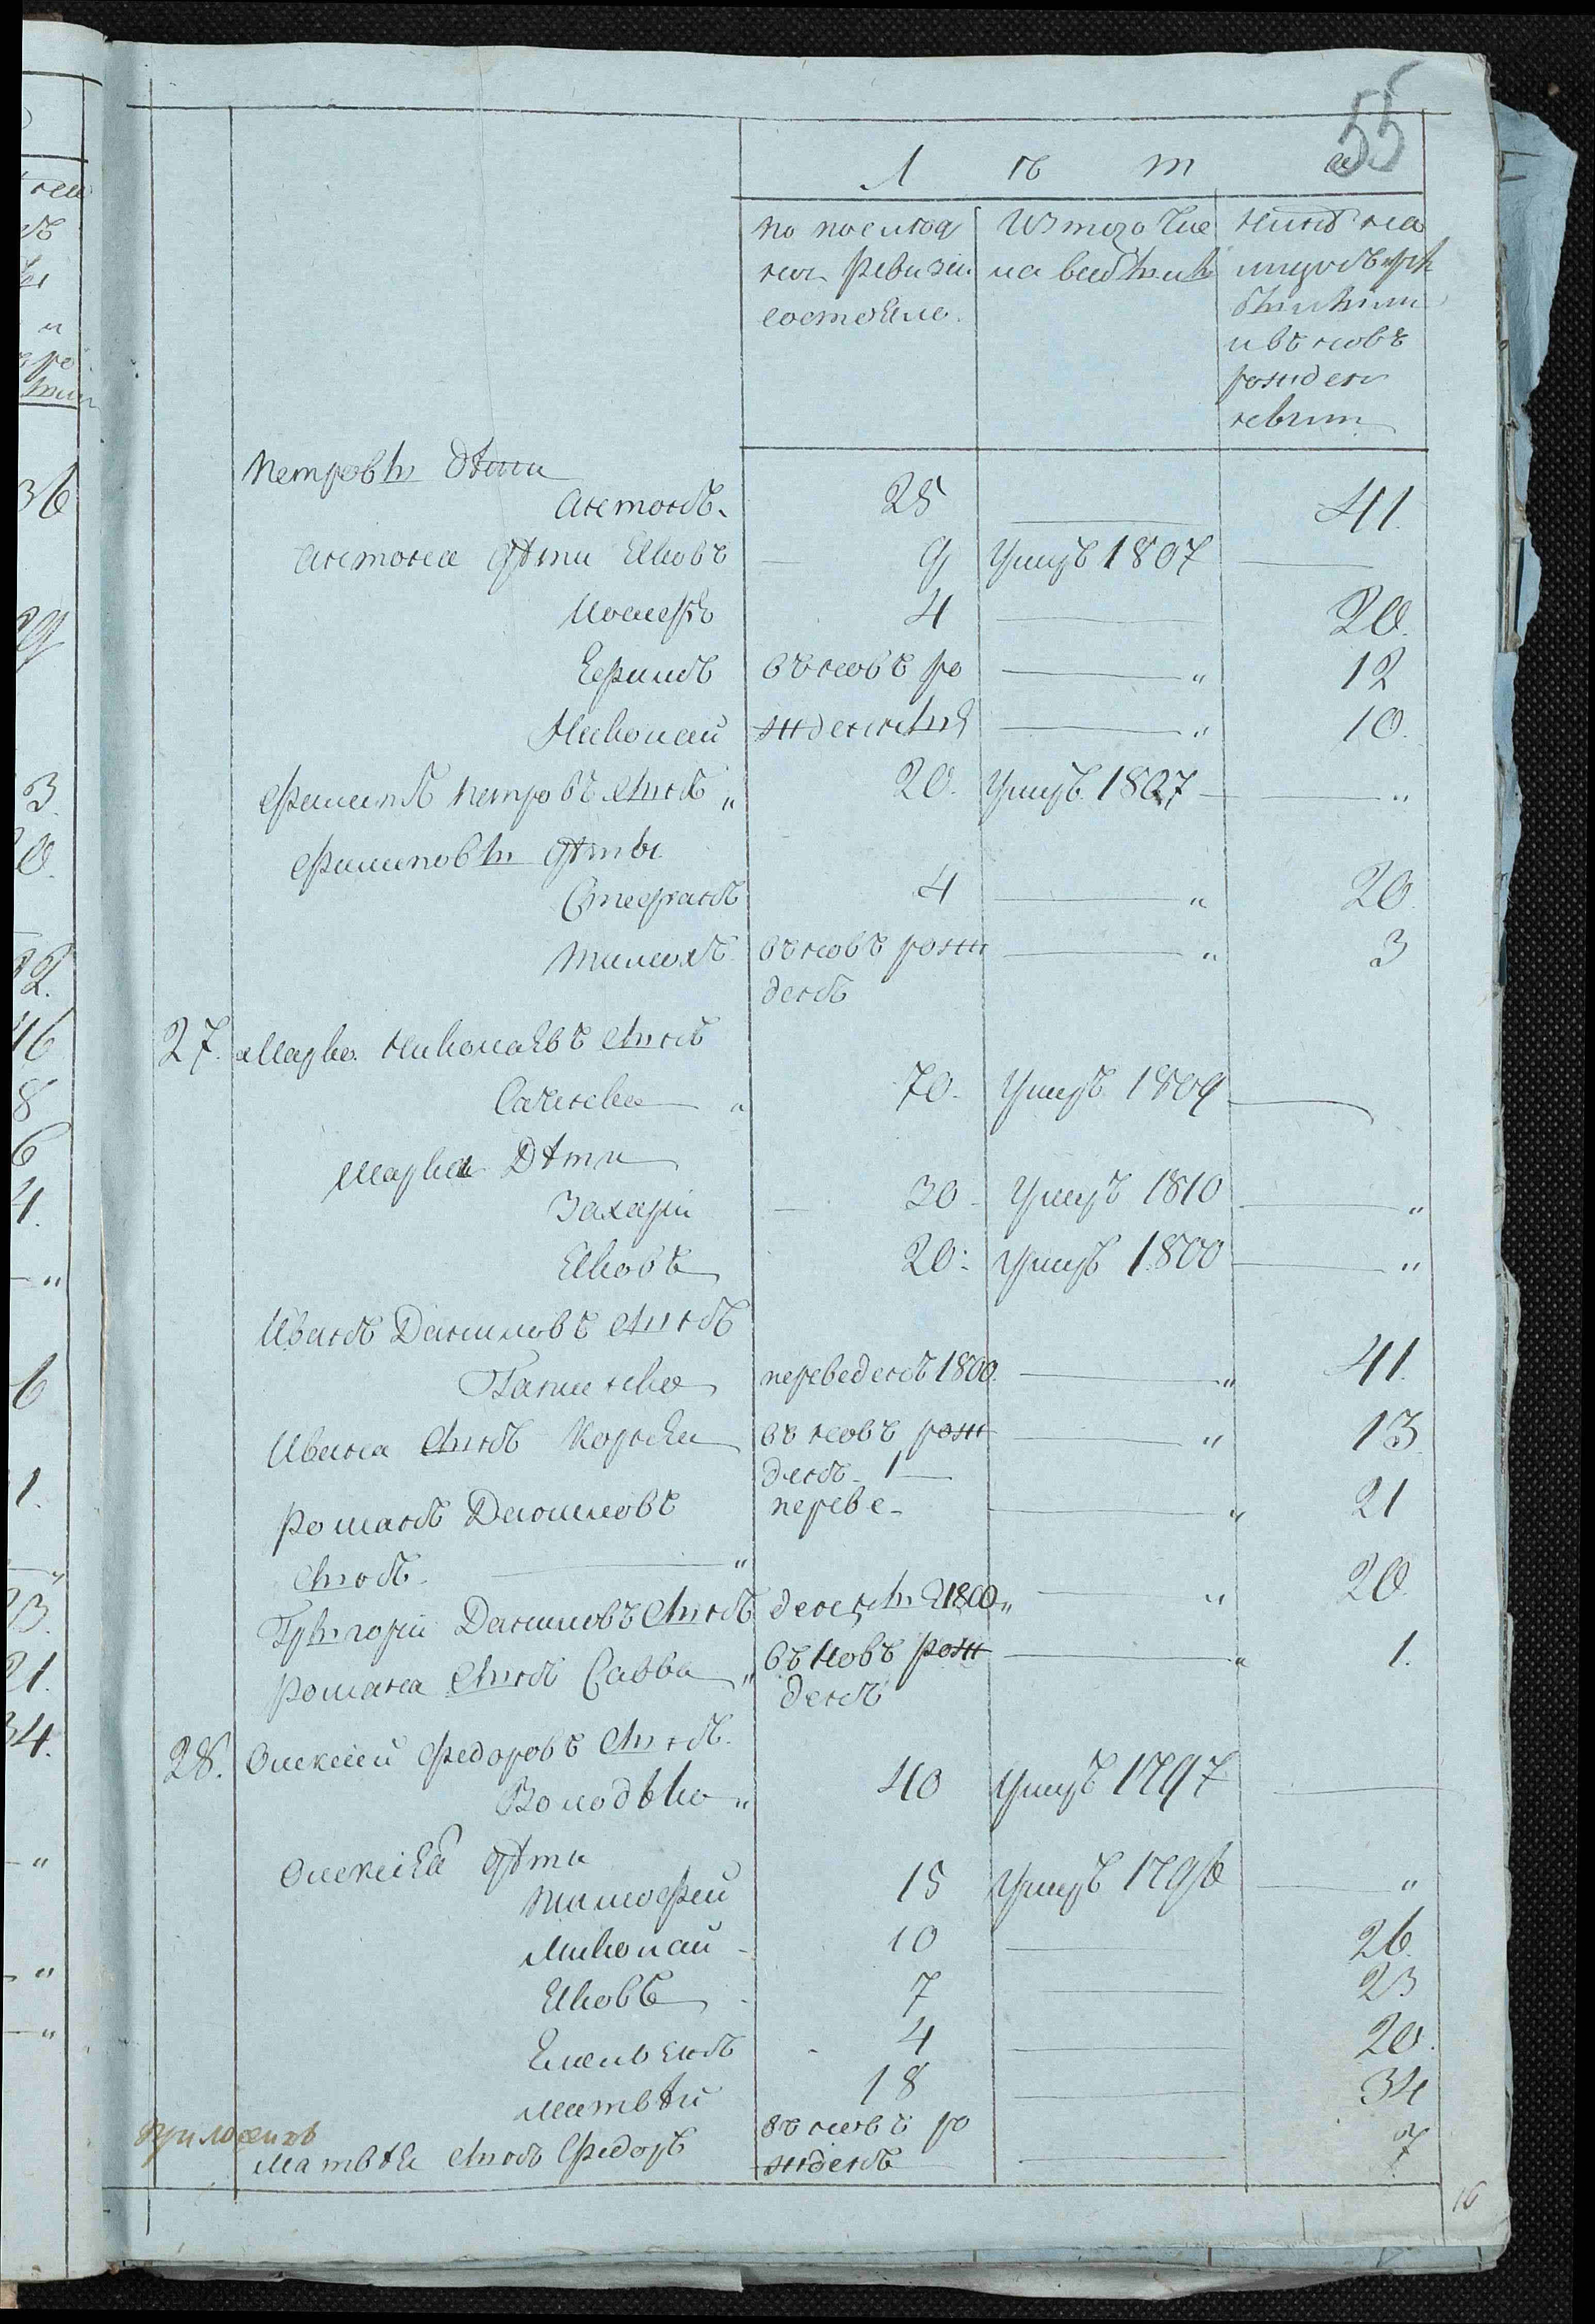 55
Лѣта
по послѣд
ней ревизіи
состояло.
Изтого числа
выбыло
нынѣ на
лицо
и въ новъ
рожден
ными
Петровы дѣти
Антонъ. 25 — 41.
Антона дѣти Яковъ — 9 Умеръ 1807 —
4 — 20.
Ефимъ въ новъ ро — " 12
Николай жденныя — " 10.
Филипъ Петровъ сынъ " 20. Умеръ 1807 — "
Филиповы дѣти
Стефанъ 4 — " 20.
въ новъ рож — " 3
денъ
27. Марко Николаевъ сынъ
" 70. Умеръ 1809 —
Марка Дѣти
Захарій — 30 Умеръ 1810 — "
Яковъ 20. Умеръ 1800 — "
Иванъ Даниловъ сынъ
переведенъ 1800. — " 41.
Ивана сынъ Корнѣй въ новъ рож — " 13
денъ
Романъ Даниловъ переве- — " 21
сынъ — "
Григорій Даниловъ сынъ дены 1800 " — " 20
Романа сынъ Савва " въ новъ рож — " 1.
денъ
28. Олексѣй Федоровъ сынъ.
Володько " 40 Умеръ 1797 —
Олексѣя дѣти
Тимофей 15 Умеръ 1796 — "
Николай 10 — 26.
Яковъ 7 — 23
Емельянъ 4 — 20.
Матвѣй 18 — 34
Матвѣя сынъ Федоръ въ новъ ро
жденъ — 7
16